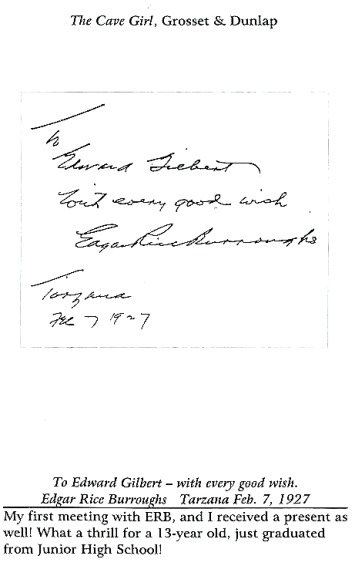 The Cave Girl, Grosset & Dunlap
To
Edward Gilbert
With every good wish
Edgar Rice Burroughs
Tarzana
Feb 7 1927
To Edward Gilbert – with every good wish.
Edgar Rice Burroughs Tarzana Feb. 7, 1927
My first meeting with ERB, and I received a present as
well! What a thrill for a 13-year old, just graduated
from Junior High School!